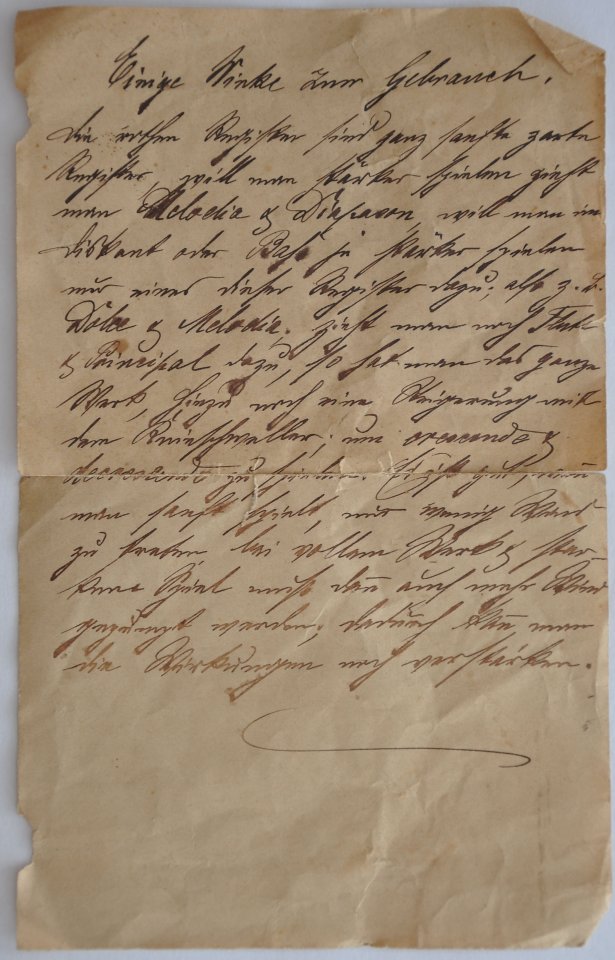 Einige Winke zum Gebrauch.
Die rothen Register sind ganz sanfte zarte
Register, will man stärker spielen zieht
man Melodia & Diapason, will man im
Diskant oder Baß je stärker spielen
nur eines dieser Register dazu; also z. B.
Dolce & Melodia. zieht man noch
& Principal dazu, so hat man das ganze
Werk, hinzu noch eine Steigerung mit
dem Knieschweller; um crescendo &
decrescendo zu spielen. Es ist gut, wenn
man sanft spielt, nur wenig Wind
zu treten, bei vollem Werk & star-
kem Spiel muß dan̅ auch mehr Wind
gepumpt werden; dadurch kan̅ man
die Wirkungen noch verstärken.